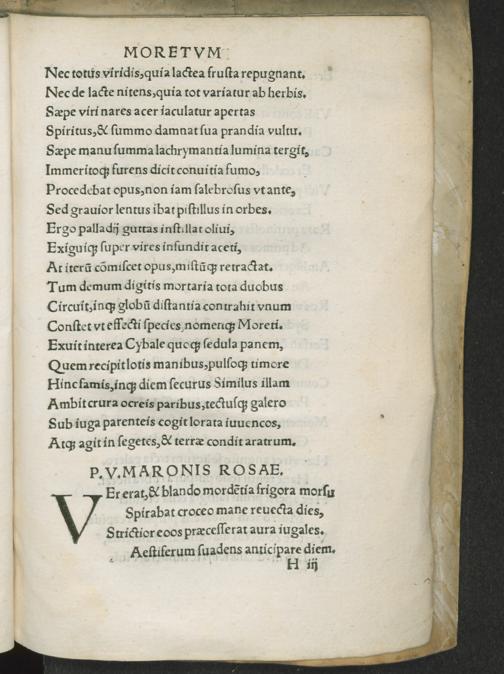 MORETVM
Nec totus viridis, quia lactea frusta repugnant.
Nec de lacte nitens, quia tot variatur ab herbis.
Sæpe viri nares acer iaculatur apertas
Spiritus, & summo damnat sua prandia vultu.
Sæpe manu summa lachrymantia lumina tergit,
Immeritoqꝫ furens dicit conuitia fumo,
Procedebat opus, non iam salebrosus vt ante,
Sed grauior lentus ibat pistillus in orbes.
Ergo palladij guttas instillat oliui,
Exiguiqꝫ super vires infundit aceti,
At iterū cōmiscet opus, mistūqꝫ retractat.
Tum demum digitis mortaria tota duobus
Circuit, inqꝫ globū distantia contrahit vnum
Constet vt effecti species, nomenqꝫ Moreti.
Exuit interea Cybale quoqꝫ sedula panem,
Quem recipit lotis manibus, pulsoqꝫ timore
Hinc famis, inqꝫ diem securus Similus illam
Ambit crura ocreis paribus, tectusqꝫ galero
Sub iuga parenteis cogit lorata iuuencos,
Atqꝫ agit in segetes, & terræ condit aratrum.
P. V. MARONIS ROSAE.
VEr erat, & blando mordētia frigora morsu
Spirabat croceo mane reuecta dies,
Strictior eoos præcesserat aura iugales.
Aestiferum suadens anticipare diem.
H iij